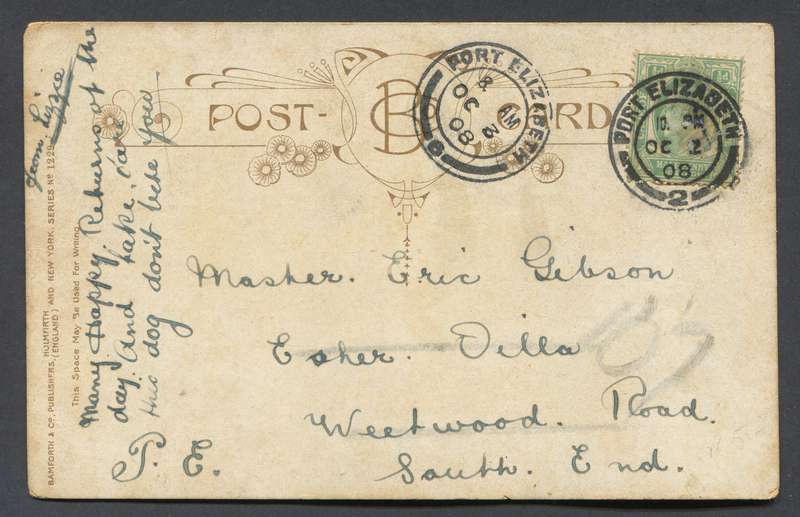 POST-CARD
PORT ELIZABETH
8 AM
OC 3
08
PORT ELIZABETH
10. PM
OC 2
08
2
Master. Eric Gibson
Esher. Villa
Westwood. Road.
P. E. South. End.
from. Lizzie
Many Happy Returns of the
day. And take. care
this dog don't bite you—
This Space May Be Used For Writing.
BAMFORTH & CO. PUBLISHERS, HOLMFIRTH AND NEW YORK, SERIES NO 1229
(ENGLAND)